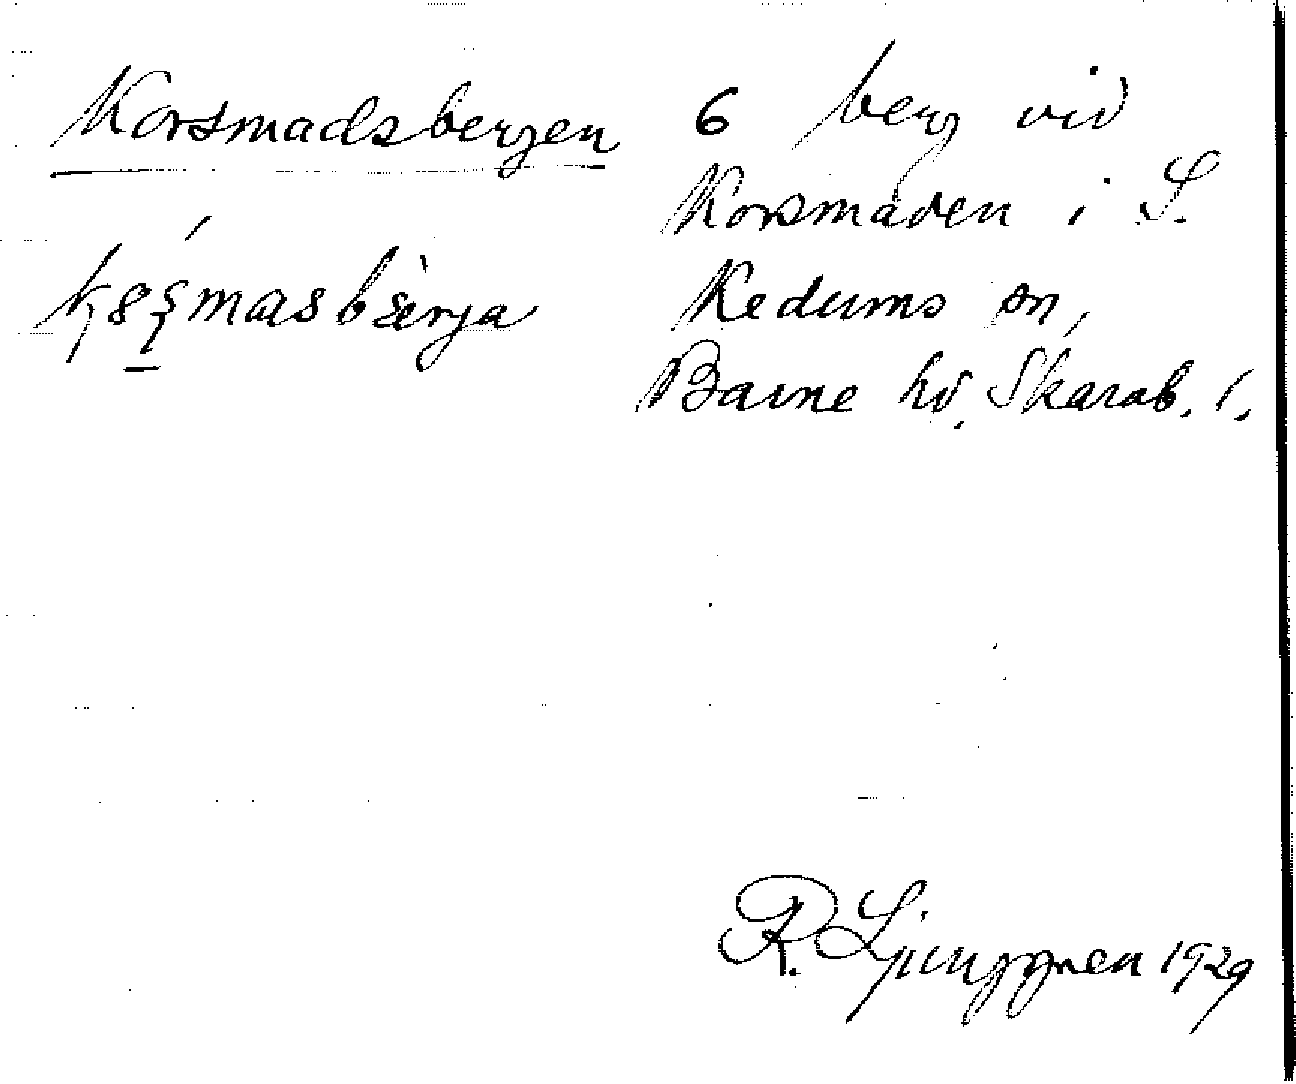 Korsmadsbergen
6 berg vid
Korsmaden i S.
Kedums sn,
Barne hd, Skarab. l.
R. Ljunggren 1929